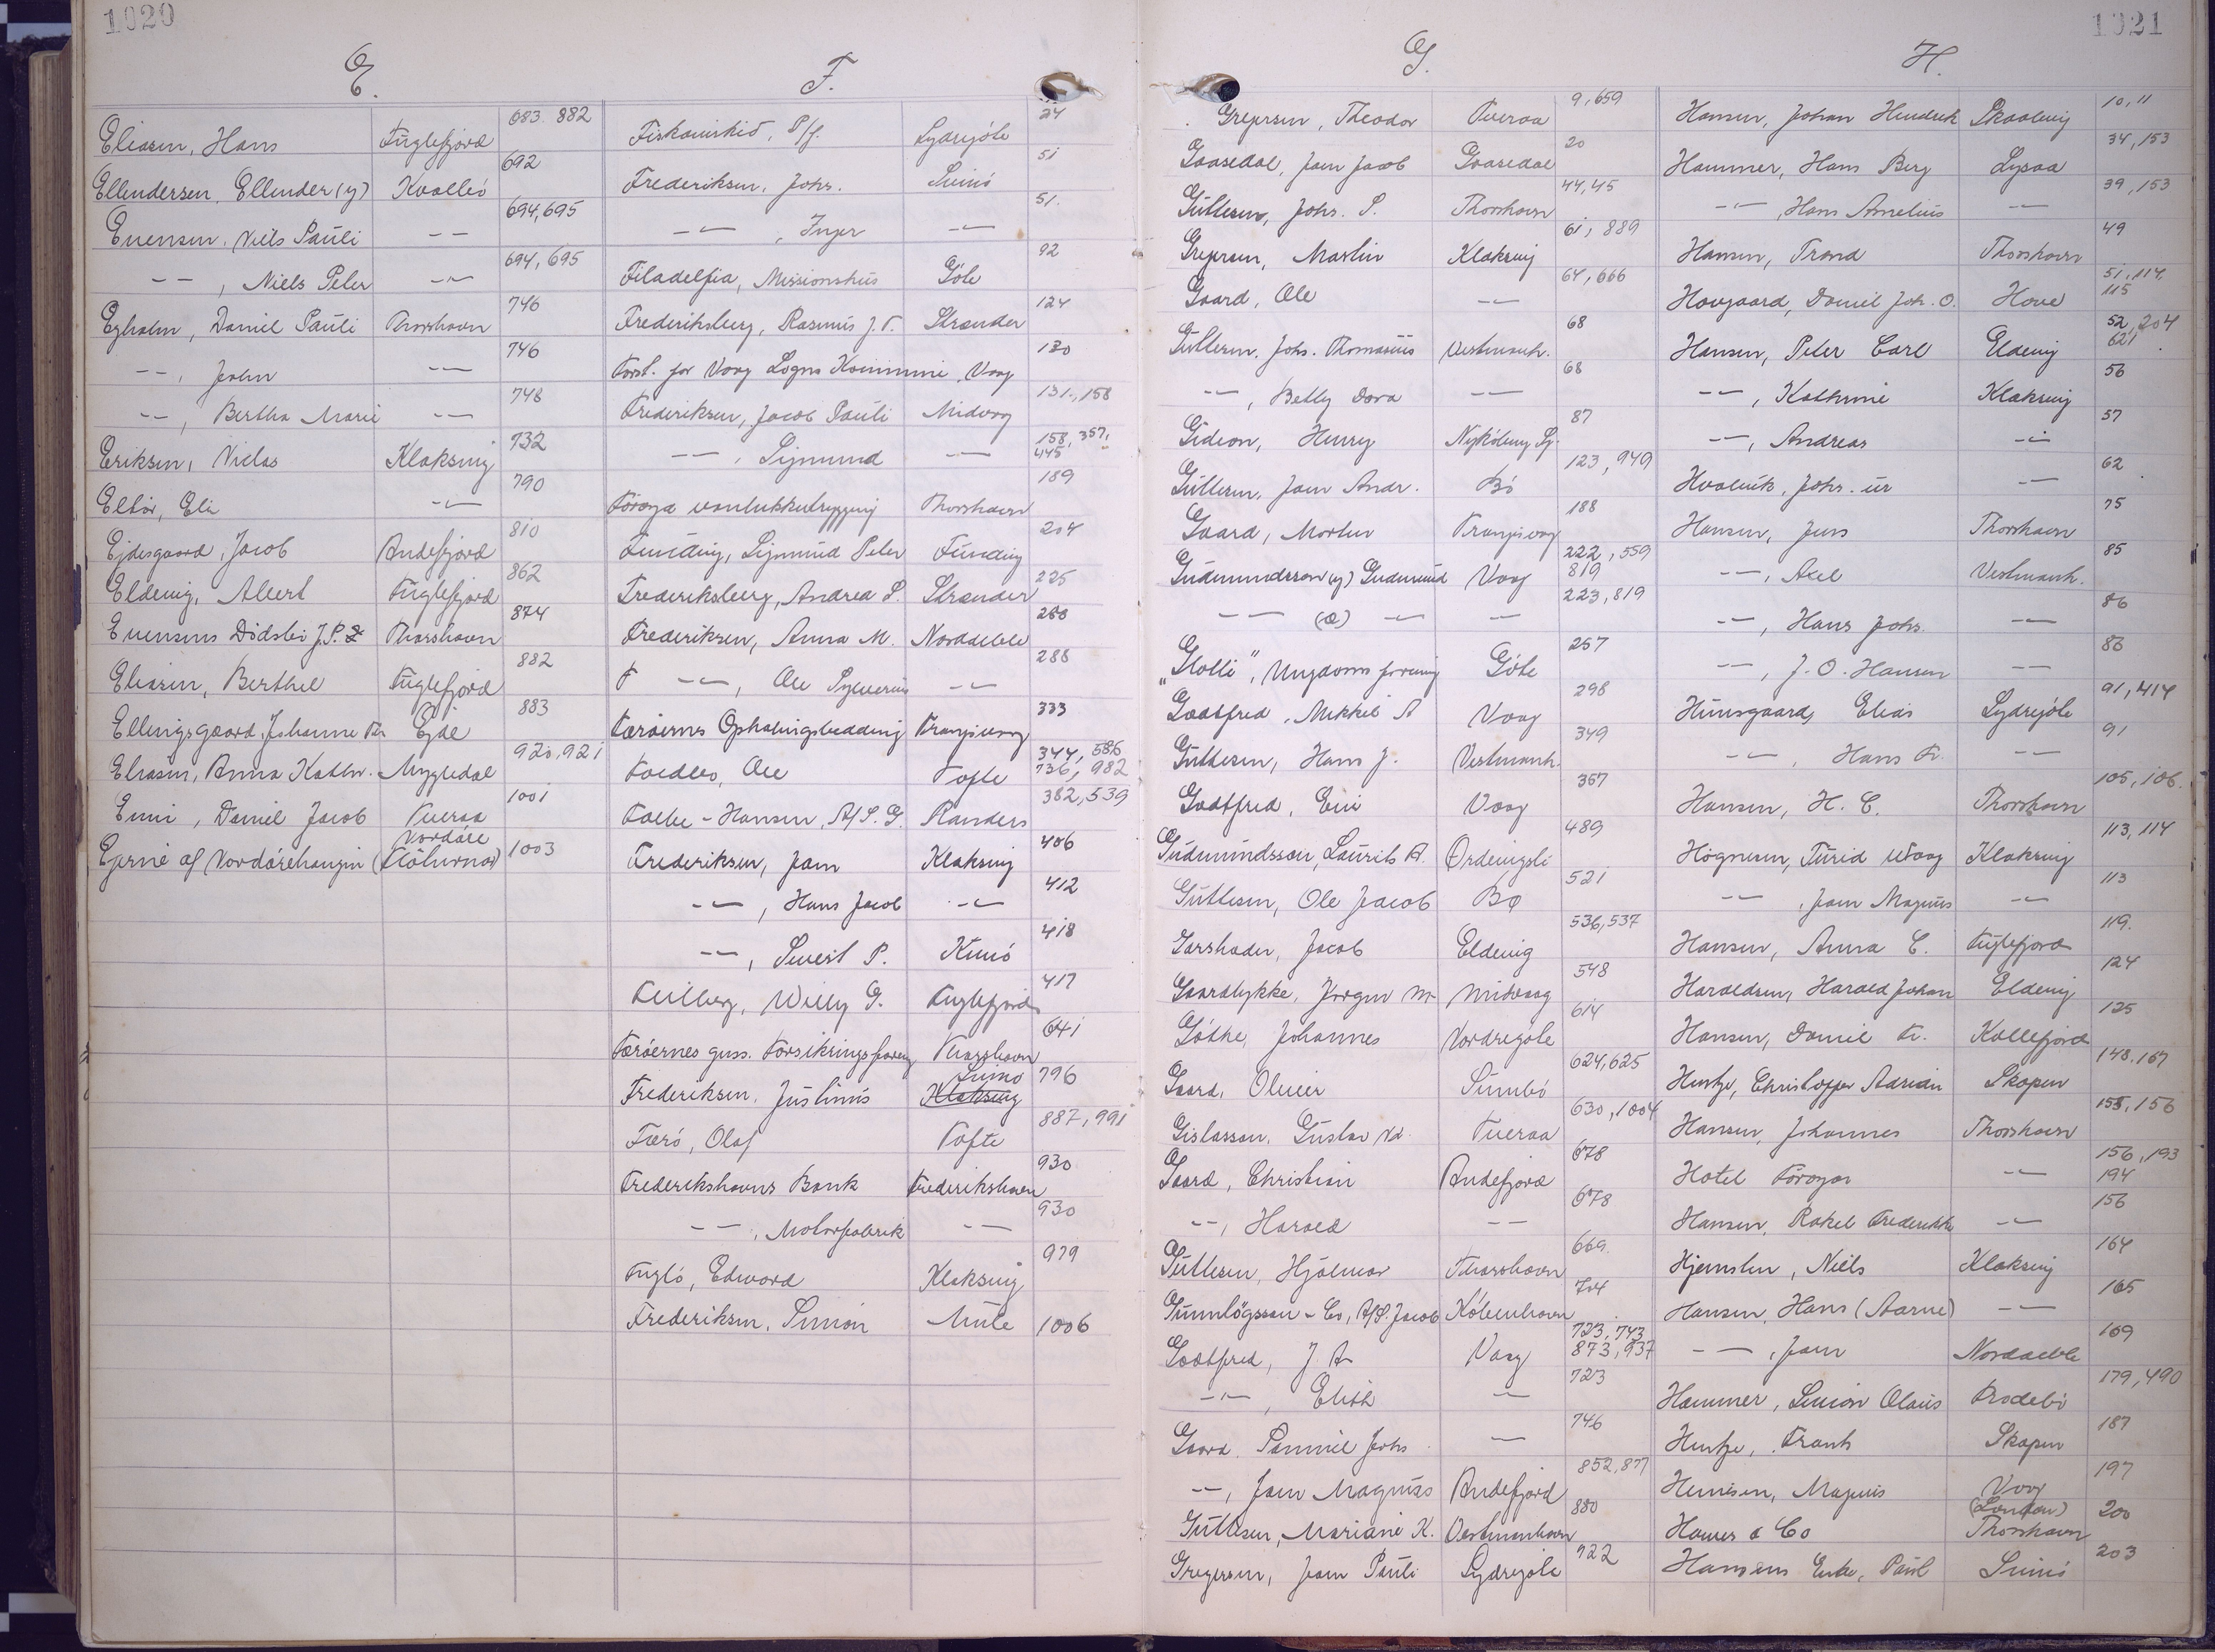 1020
E.
Eliasen, Hans Fuglefjord 683. 882
Ellendersen, Ellender (y) Kvalbö 692
Evensen, Niels Pauli -- 694, 695
-- , Niels Peter -- 694, 695
Egholm, Daniel Pauli Thorshavn 746
-- , John -- 746
-- , Bertha Marie -- 748
Eriksen, Niclas Klaksvig 732
Eltör, Eli -- 790
Ejdesgaard, Jacob Andefjord 810
Eldevig, Albert Fuglefjord 862
Evensens Dödsbo J.P. Thorshavn 874
Eliasen, Berthel Fuglefjord 882
Ellingsgaard, Johanne Fr. Ejde 883
Eliasen, Anna Kathr. Mygledal 920, 921
Enni, Daniel Jacob Tveraa 1001
Ejerne af Nordörehaugin (Nordöre Flöturnar) 1003
F.
Fiskavirkið, P/f. Sydregöte 24
Frederiksen, Johs. Svinö 51
-- , Inger -- 51.
Filadelfia, Missionshus Göte 92
Frederiksberg, Rasmus J. F. Strænder 124
Forst. for Vaag Sogns Kommune, Vaag 130
Frederiksen, Jacob Pauli Midvaag 131, 158
-- , Sigmund -- 158, 357, 445
Föroya vanlukkutrygging Thorshavn 189
Funding, Sigmund Peter Funding 204
Frederiksberg, Andrea S. Strænder 225
Frederiksen, Anna M. Norddeble 280
F -- , Ole Sylverius -- 288
Færöernes Ophalingsbedding Trangisvaag 333
Foldbo, Ole Tofte 344, 586 736, 982
Falbe-Hansen, A/S. G. Randers 382, 539
Frederiksen, Joen Klaksvig 406
-- , Hans Jacob -- 412
-- , Sivert P. Kunö 418
Feilberg, Willy G. Fuglefjord 417
Færöernes gens. Forsikringsforeng Thorshavn 641
Frederiksen, Justinus Svinö Klaksvig 796
Færö, Olaf Tofte 887, 991
Frederikshavns Bank Frederikshavn 930
-- , Motorfabrik -- 930
Fuglö, Edward Klaksvig 979
Frederiksen, Simon Mule 1006
1021
G.
Gregersen, Theodor Tveraa 9, 659
Gaasedal, Joen Jacob Gaasedal 20
Guttesen, Johs. P. Thorshavn 44, 45
Gregersen, Martin Klaksvig 61, 889
Gaard, Ole -- 64, 666
Guttesen, Johs. Thomasius Vestmanh. 68
-- , Betty Dora -- 68
Gideon, Henry Nyköbing Sj. 87
Guttesen, Joen Andr. Bö 123, 949
Gaard, Morten Trangisvaag 188
Gudmundsson (y) Gudmund Vaag 222, 559 819
-- (æ) -- -- 223, 819
"Glotti", Ungdomsforening Göte 257
Godtfred, Mikkel A Vaag 298
Guttesen, Hans J. Vestmanh. 349
Godtfred, Eni Vaag 367
Gudmundsson, Laurits A. Ördevigsli 489
Guttesen, Ole Jacob Bø 521
Garshader, Jacob Eldevig 536, 537
Gaardlykke, Jørgen M. Midvaag 548
Göthe, Johannes Nordregöte 614
Gaard, Oliver Sumbö 624, 625
Gislasson, Gustav Vd. Tveraa 630, 1004
Gaard, Christian Andefjord 678
-- , Harald -- 678
Guttesen, Hjalmar Thorshavn 669.
Gunnlögsson & Co, A/S. Jacob Köbenhavn 704
Godtfred, J. A. Vaag 723, 743 873, 937
-- , Elith -- 723
Gaard, Sammel Johs -- 746
-- , Joen Magnus Andefjord 852, 877
Guttesen, Mariane K. Vestmanhavn 880
Gregersen, Joen Pauli Sydregöte 922
H.
Hansen, Johan Hendrik Skaalevig 10, 11
Hammer, Hans Berg Lopraa 34, 153
-- , Hans Amelius -- 39, 153
Hansen, Trond Thorshavn 49
Hovgaard, Daniel Joh. O. Hove 51, 114, 115
Hansen, Peter Carl Eldevig 52, 204 621
-- , Kathrine Klaksvig 56
-- , Andreas -- 57
Hvalvik, Johs. úr -- 62
Hansen, Jens Thorshavn 75
-- , Axel Vestmanh. 85
-- , Hans Johs. -- 86
-- , J. O. Hansen -- 86
Huusgaard, Elias Sydregöte 91, 414
-- , Hans Fr. -- 91
Hansen, H. C. Thorshavn 105, 106.
Högnesen, Turid Utvaag Klaksvig 113, 114
-- , Joen Magnus -- 113
Hansen, Anna C. Fuglefjord 119.
Haraldsen, Harald Johan Eldevig 124
Hansen, Daniel Fr. Kollefjord 125
Hentze, Christopher Adrian Skopen 148. 167
Hansen, Johannes Thorshavn 155, 156
Hotel Föroyar -- 156, 193 194
Hansen, Rakel Frederikke -- 156
Hjemsten, Niels Klaksvig 164
Hansen, Hans (Aarne) -- 165
-- , Joen Norddeble 169
Hammer, Simon Olaus Frodebö 179, 490
Hentze, Frants Skopen 187
Henrisen, Magnus Vaag 197
Hawes & Co (London) Thorshavn 200
Hansens Enke, Paul Svinö 203